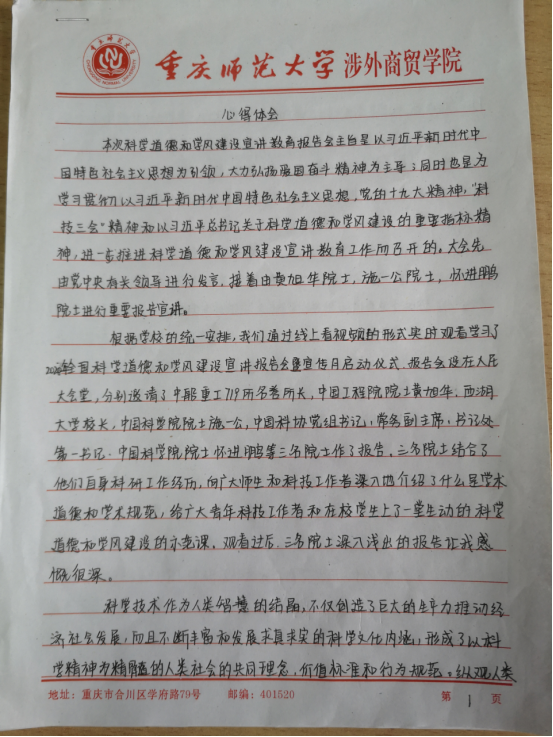 重庆师范大学涉外商贸学院
心得体会
本次科学道德和学风建设宣讲教育报告会主旨是以习近平新时代中
国特色社会主义思想为引领，大力弘扬爱国奋斗精神为主导；同时也是为
学习贯彻以习近平新时代中国特色社会主义思想，党的十九大精神，“科
技三会”精神和以习近平总书记关于科学道德和学风建设的重要指标精
神，进一步推进科学道德和学风建设宣讲教育工作而召开的。大会先
由党中央有关领导进行发言，接着由黄旭华院士，施一公院士，怀进鹏
院士进行重要报告宣讲。
根据学校的统一安排，我们通过线上看视频的形式实时观看学习了
全国科学道德和学风建设宣讲报告会暨宣传月启动仪式，报告会设在人民
大会堂，分别邀请了中船重工719所名誉所长，中国工程院院士黄旭华，西湖
大学校长，中国科学院院士施一公，中国科协党组书记，常务副主席，书记处
第一书记，中国科学院院士怀进鹏等三名院士作了报告，三名院士结合了
他们自身科研工作经历，向广大师生和科技工作者深入的介绍了什么是学术
道德和学术规范，给广大青年科技工作者和在校学生上了一堂生动的科学
道德和学风建设的示范课。观看过后，三名院士深入浅出的报告让我感
慨很深。
科学技术作为人类智慧的结晶，不仅创造了巨大的生产力推动经
济社会发展，而且不断丰富和发展求真求实的科学文化内涵，形成了以科
学精神为精髓的人类社会的共同理念，价值标准和行为规范。纵观人类
地址：重庆市合川区学府路79号 邮编：401520 第 1 页